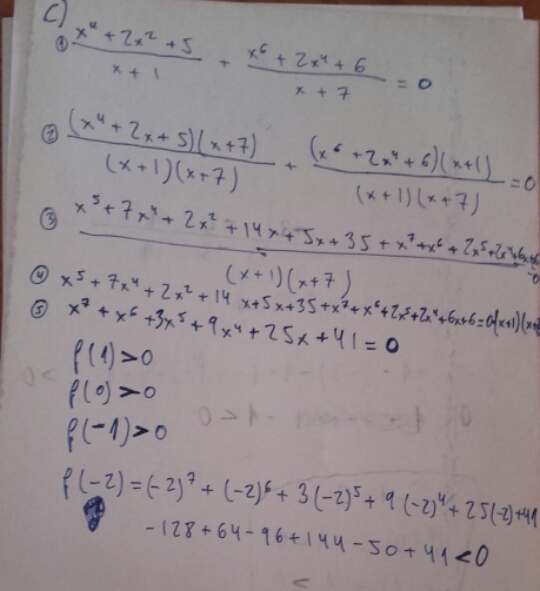 C)
① (x⁴ + 2x² + 5)/(x + 1) + (x⁶ + 2x⁴ + 6)/(x + 7) = 0
② ((x⁴ + 2x + 5)(x+7))/((x+1)(x+7)) + ((x⁶ + 2x⁴ + 6)(x+1))/((x+1)(x+7)) = 0
③ (x⁵ + 7x⁴ + 2x² + 14x + 5x + 35 + x⁷ + x⁶ + 2x⁵ + 2x⁴ + 6x + 6)/((x+1)(x+7)) = 0
④ x⁵ + 7x⁴ + 2x² + 14 x + 5x + 35 + x⁷ + x⁶ + 2x⁵ + 2x⁴ + 6x + 6 = 0·(x+1)(x+
⑤ x⁷ + x⁶ + 3x⁵ + 9x⁴ + 25x + 41 = 0
f(1) > 0
f(0) > 0
f(-1) > 0
f(-2) = (-2)⁷ + (-2)⁶ + 3(-2)⁵ + 9(-2)⁴ + 25(-2) + 41
-128 + 64 - 96 + 144 - 50 + 41 < 0